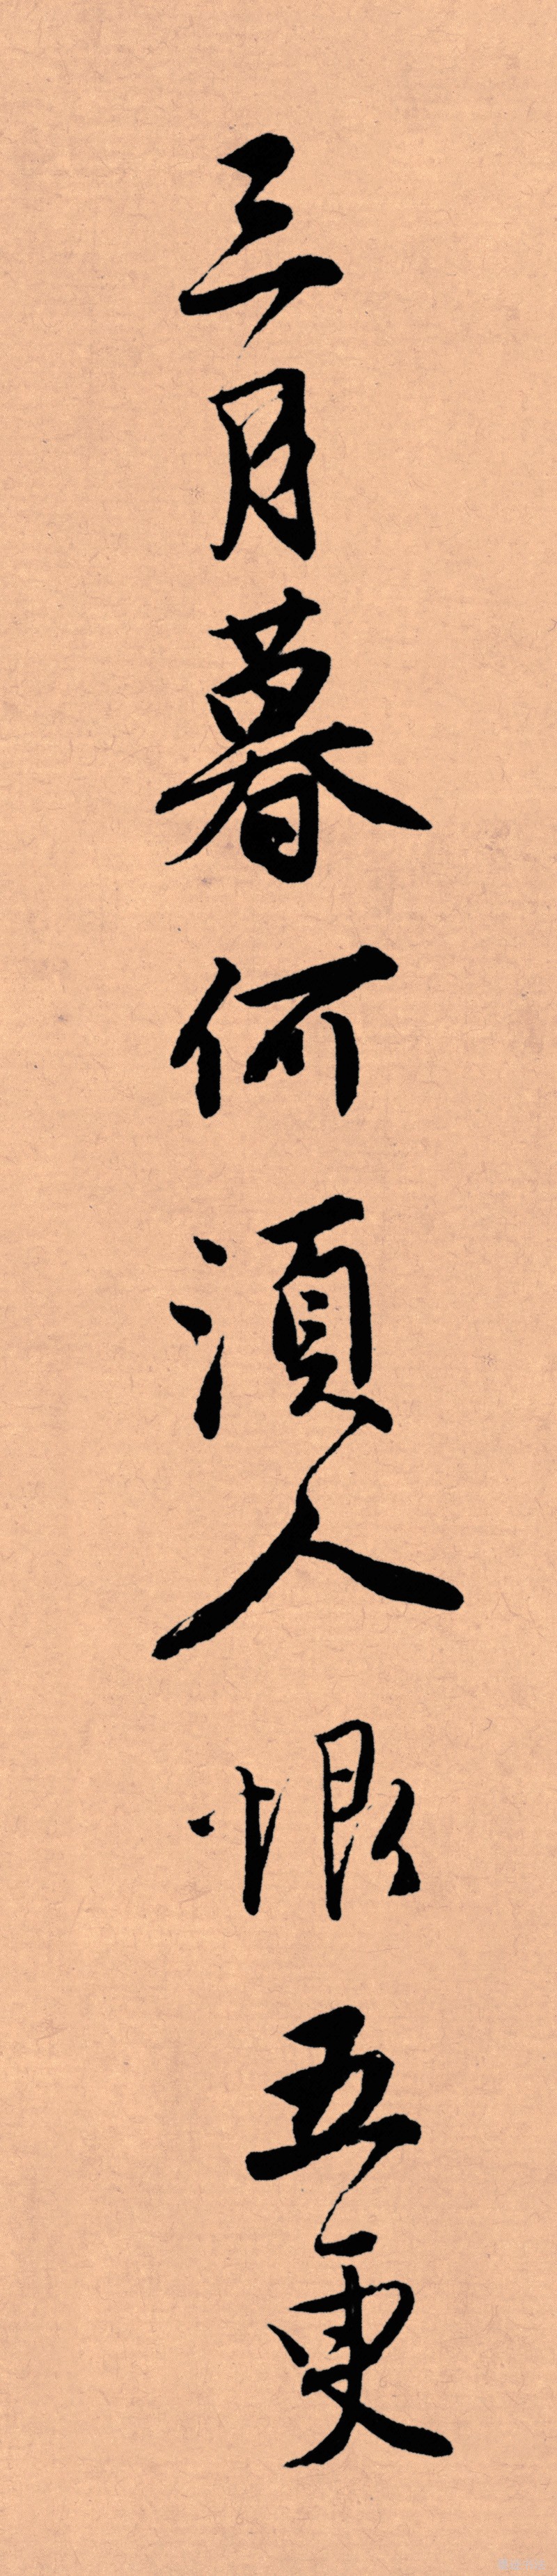 三月暮何須人恨五更